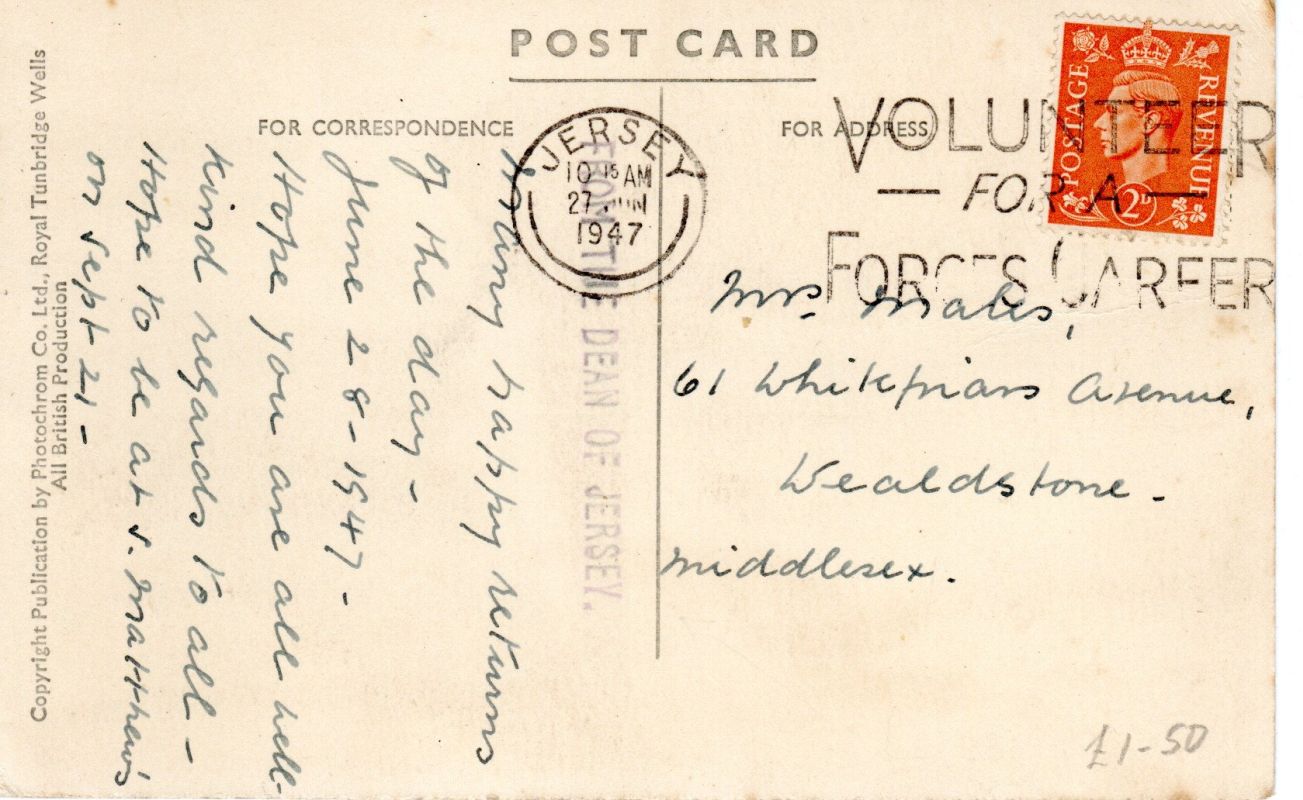 POST CARD
FOR CORRESPONDENCE
FOR ADDRESS
Copyright Publication by Photochrom Co. Ltd., Royal Tunbridge Wells
All British Production
FROM THE DEAN OF JERSEY.
Many happy returns
of the day -
June 28 - 1947 -
Hope you are all well -
Kind regards to all -
Hope to be at S. Matthew's
on Sept 21 -
JERSEY
10 15 AM
27 JUN
1947
VOLUNTEER
— FOR A —
FORCES CAREER
POSTAGE
REVENUE
2D
Mrs
61 Whitefriars Avenue,
Wealdstone -
Middlesex.
£1-50